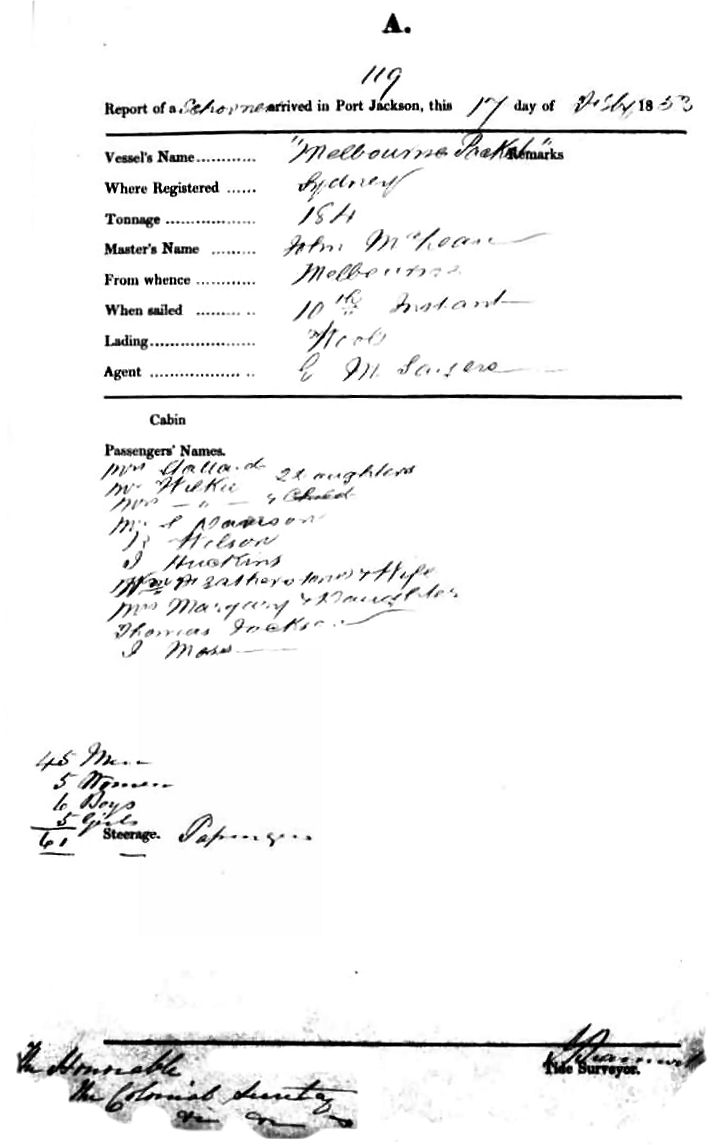 A.
119
Report of a Schooner arrived in Port Jackson, this 17 day of 1853
Vessel's Name............ "Melbourne Packet" Remarks
Where Registered ...... Sydney
Tonnage .................... 184
Master's Name .......... John McLean
From whence ............ Melbourne
When sailed ......... .. 10th Instant
Lading....................... Wool
Agent .................. .. E M Sayers
Cabin
Passengers' Names.
Mrs 2 Daughters
Mr Wilkie
Mrs " & Child
Mr S
Wilson
J Huckins
Wm & Wife
Mrs & Daughter
Thomas Jackson
J Moss
45 Men
5 Women
6 Boys
5 Girls
61 Steerage. Passengers
The Honorable
The Colonial Secretary
Tide Surveyor.